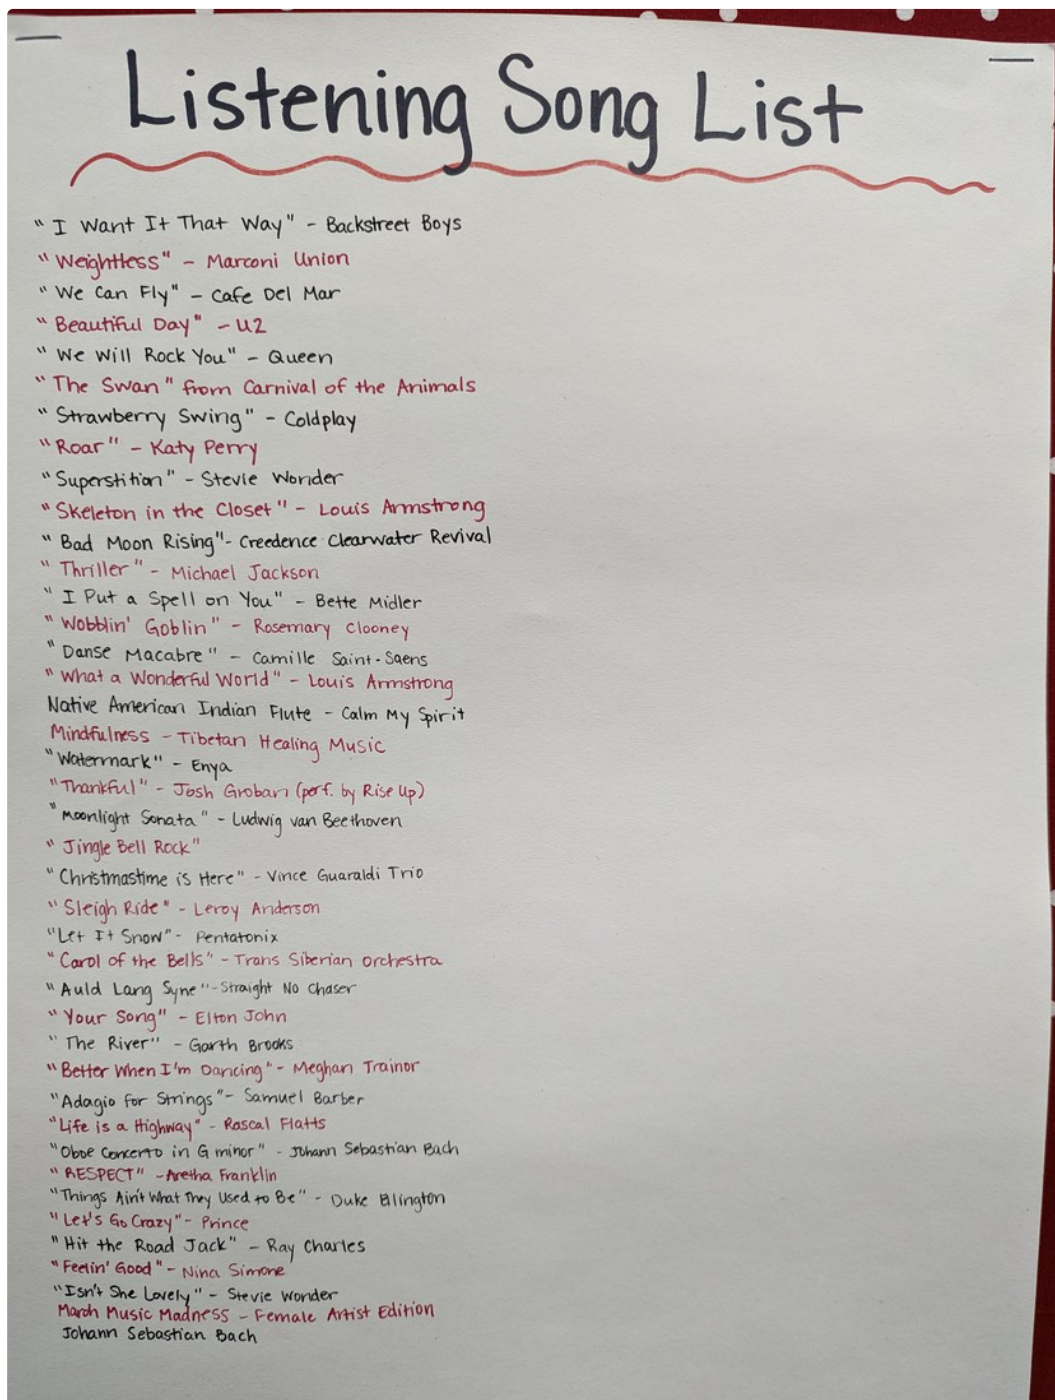 Listening Song List
"I Want It That Way" - Backstreet Boys
"Weightless" - Marconi Union
"We Can Fly" - Cafe Del Mar
"Beautiful Day" - U2
"We Will Rock You" - Queen
"The Swan" from Carnival of the Animals
"Strawberry Swing" - Coldplay
"Roar" - Katy Perry
"Superstition" - Stevie Wonder
"Skeleton in the Closet" - Louis Armstrong
"Bad Moon Rising" - Creedence Clearwater Revival
"Thriller" - Michael Jackson
"I Put a Spell on You" - Bette Midler
"Wobblin' Goblin" - Rosemary Clooney
"Danse Macabre" - Camille Saint-Saens
"What a Wonderful World" - Louis Armstrong
Native American Indian Flute - Calm My Spirit
Mindfulness - Tibetan Healing Music
"Watermark" - Enya
"Thankful" - Josh Groban (perf. by Rise Up)
"Moonlight Sonata" - Ludwig van Beethoven
"Jingle Bell Rock"
"Christmastime is Here" - Vince Guaraldi Trio
"Sleigh Ride" - Leroy Anderson
"Let It Snow" - Pentatonix
"Carol of the Bells" - Trans Siberian Orchestra
"Auld Lang Syne" - Straight No Chaser
"Your Song" - Elton John
"The River" - Garth Brooks
"Better When I'm Dancing" - Meghan Trainor
"Adagio for Strings" - Samuel Barber
"Life is a Highway" - Rascal Flatts
"Oboe Concerto in G minor" - Johann Sebastian Bach
"RESPECT" - Aretha Franklin
"Things Ain't What They Used to Be" - Duke Ellington
"Let's Go Crazy" - Prince
"Hit the Road Jack" - Ray Charles
"Feelin' Good" - Nina Simone
"Isn't She Lovely" - Stevie Wonder
March Music Madness - Female Artist Edition
Johann Sebastian Bach